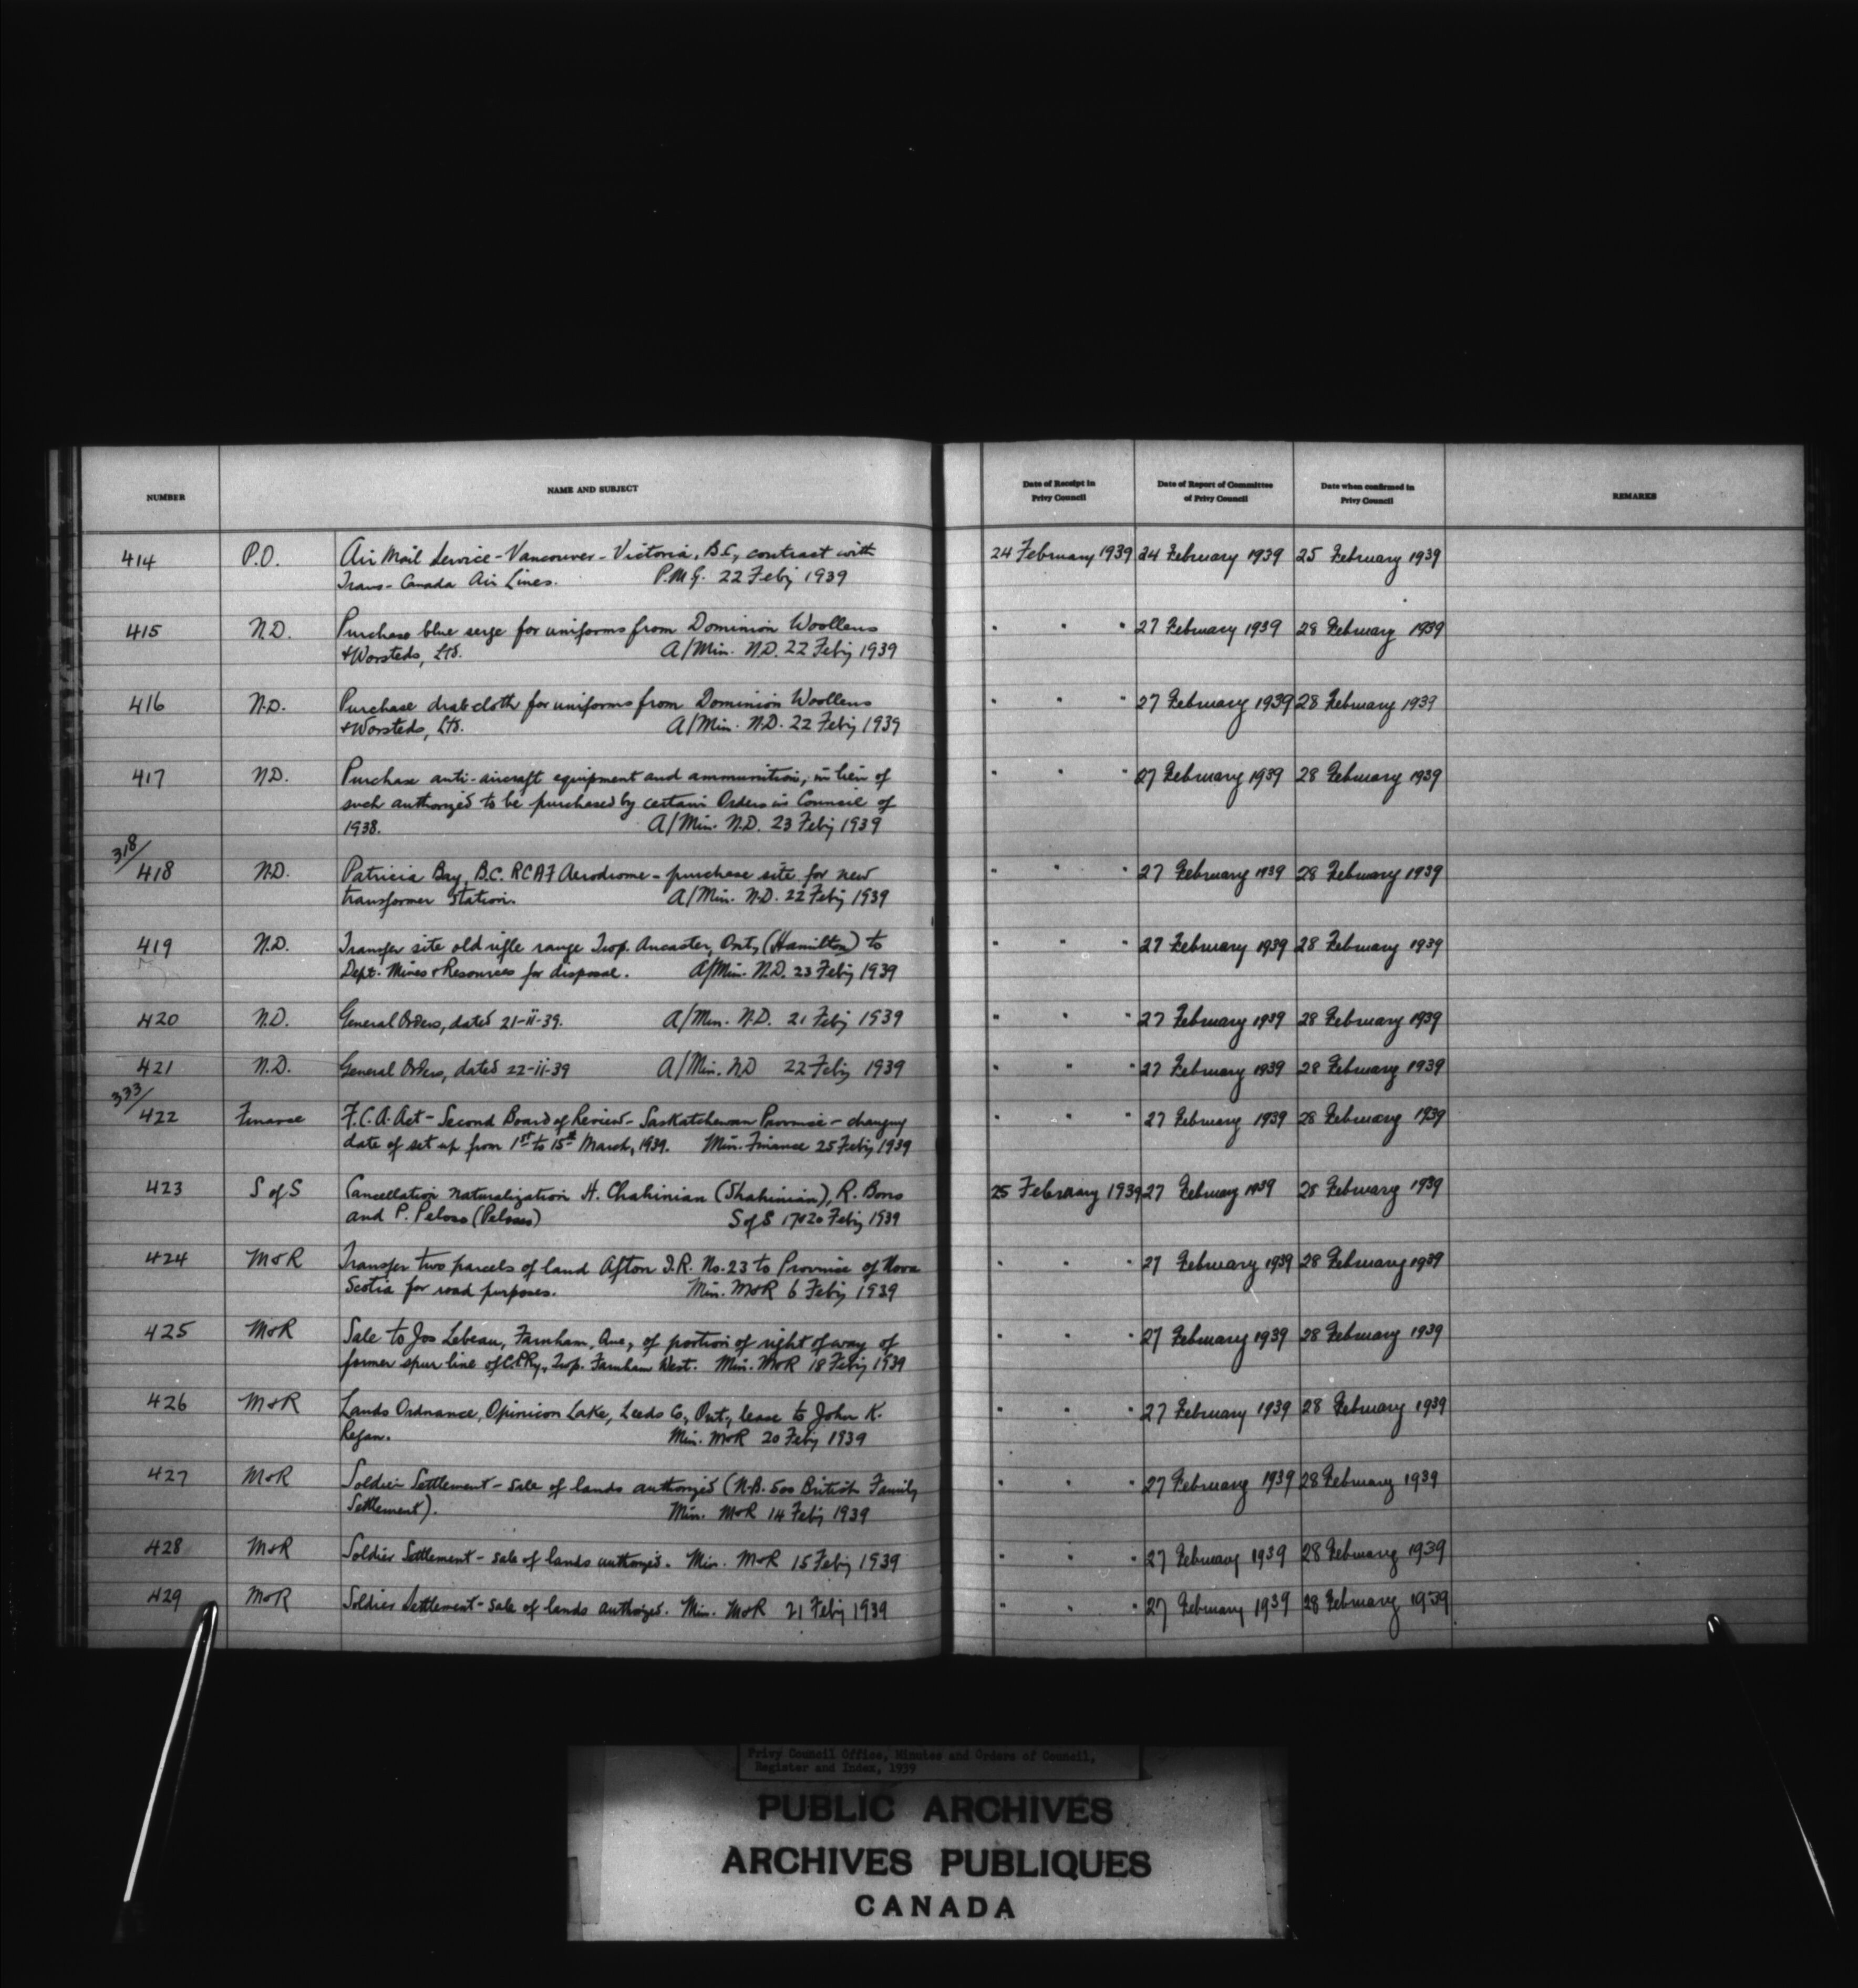 NUMBER NAME AND SUBJECT Date of Receipt in Privy Council Date of Report of Committee of Privy Council Date when confirmed in Privy Council REMARKS
414 P.O. Air Mail Service - Vancouver - Victoria, B.C., contract with 24 February 1939 24 February 1939 25 February 1939
Trans-Canada Air Lines. P.M.G. 22 Feb'y 1939
415 N.D. Purchase blue serge for uniforms from Dominion Woollens " " " 27 February 1939 28 February 1939
& Worsteds, Ltd. A/Min. N.D. 22 Feb'y 1939
416 N.D. Purchase drab cloth for uniforms from Dominion Woollens " " " 27 February 1939 28 February 1939
& Worsteds, Ltd. A/Min. N.D. 22 Feb'y 1939
417 N.D. Purchase anti-aircraft equipment and ammunition, in lieu of " " " 27 February 1939 28 February 1939
such authorized to be purchased by certain Orders in Council of
1938. A/Min. N.D. 23 Feb'y 1939
318/
418 N.D. Patricia Bay, B.C. RCAF Aerodrome - purchase site for new " " " 27 February 1939 28 February 1939
transformer station. A/Min. N.D. 22 Feb'y 1939
419 N.D. Transfer site old rifle range Twp. Ancaster, Ont., (Hamilton) to " " " 27 February 1939 28 February 1939
Dept. Mines & Resources for disposal. A/Min. N.D. 23 Feb'y 1939
420 N.D. General Orders, dated 21-ii-39. A/Min. N.D. 21 Feb'y 1939 " " " 27 February 1939 28 February 1939
421 N.D. General Orders, dated 22-ii-39 A/Min. N.D 22 Feb'y 1939 " " " 27 February 1939 28 February 1939
333/
422 Finance F.C.A. Act - Second Board of Review - Saskatchewan Province - changing " " " 27 February 1939 28 February 1939
date of set up from 1st to 15th March, 1939. Min. Finance 25 Feb'y 1939
423 S of S Cancellation naturalization H. Chahinian (Shahinian), R. 25 February 1939 27 February 1939 28 February 1939
and P. Peloso S of S 17&20 Feb'y 1939
424 M&R Transfer two parcels of land Afton I.R. No. 23 to Province of Nova " " " 27 February 1939 28 February 1939
Scotia for road purposes. Min. M&R 6 Feb'y 1939
425 M&R Sale to Jos Lebeau, Farnham, Que., of portion of right of way of " " " 27 February 1939 28 February 1939
former spur line of C.P.Ry., Twp. Farnham West. Min. M&R 18 Feb'y 1939
426 M&R Lands Ordnance, Opinicon Lake, Leeds Co., Ont., lease to John K. " " " 27 February 1939 28 February 1939
Regan. Min. M&R 20 Feb'y 1939
427 M&R Soldier Settlement - sale of lands authorized (N.B. 500 British Family " " " 27 February 1939 28 February 1939
Settlement). Min. M&R 14 Feb'y 1939
428 M&R Soldier Settlement - sale of lands authorized. Min. M&R 15 Feb'y 1939 " " " 27 February 1939 28 February 1939
429 M&R Soldier Settlement - sale of lands authorized. Min. M&R 21 Feb'y 1939 " " " 27 February 1939 28 February 1939
Privy Council Office, Minutes and Orders of Council,
Register and Index, 1939
PUBLIC ARCHIVES
ARCHIVES PUBLIQUES
CANADA